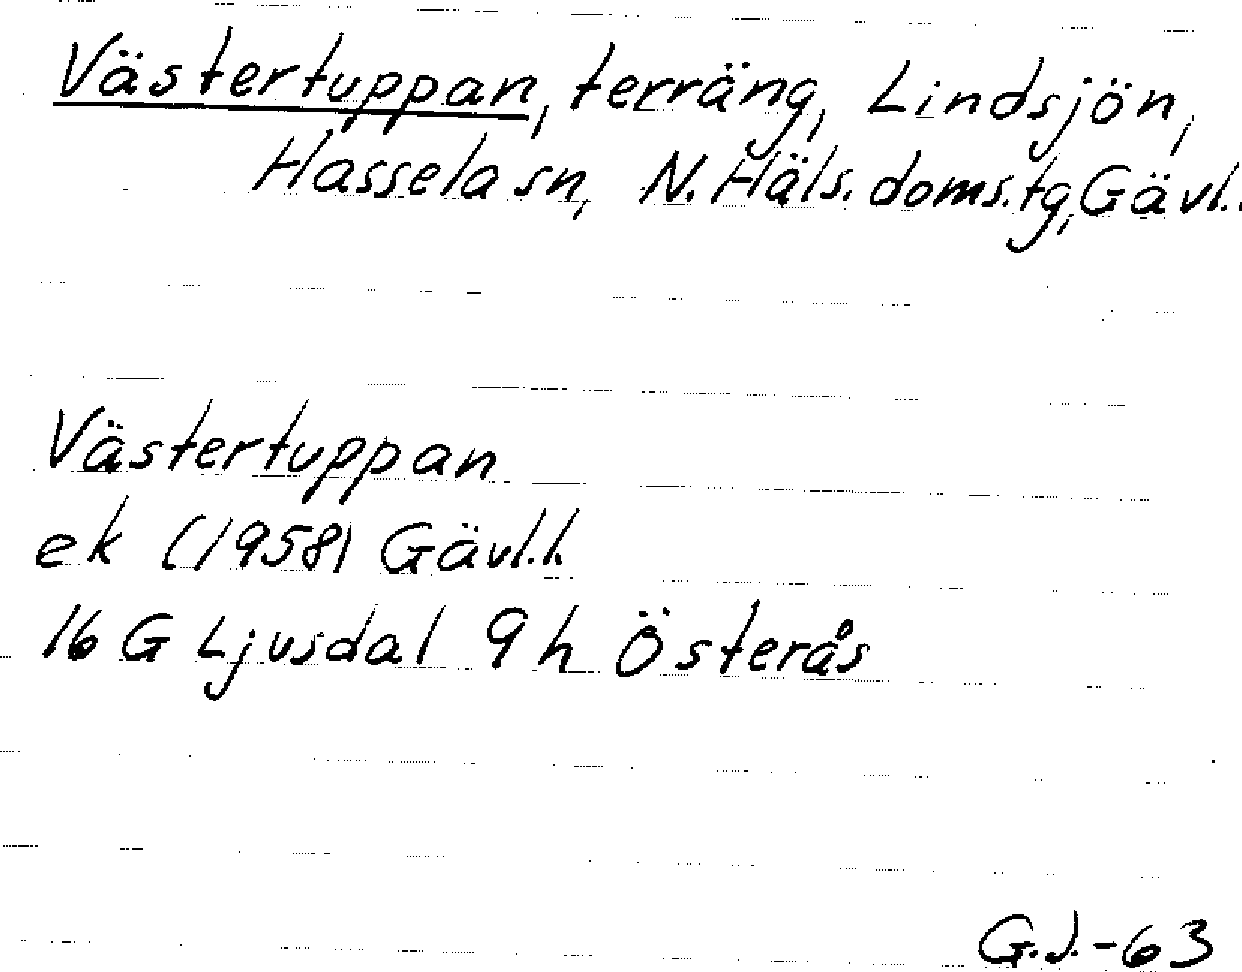 Västertuppan, terräng, Lindsjön,
Hassela sn, N. Häls. doms.tg, Gävl.
Västertuppan
ek (1958) Gävl.l.
16 G Ljusdal 9h Österås
G.J.-63